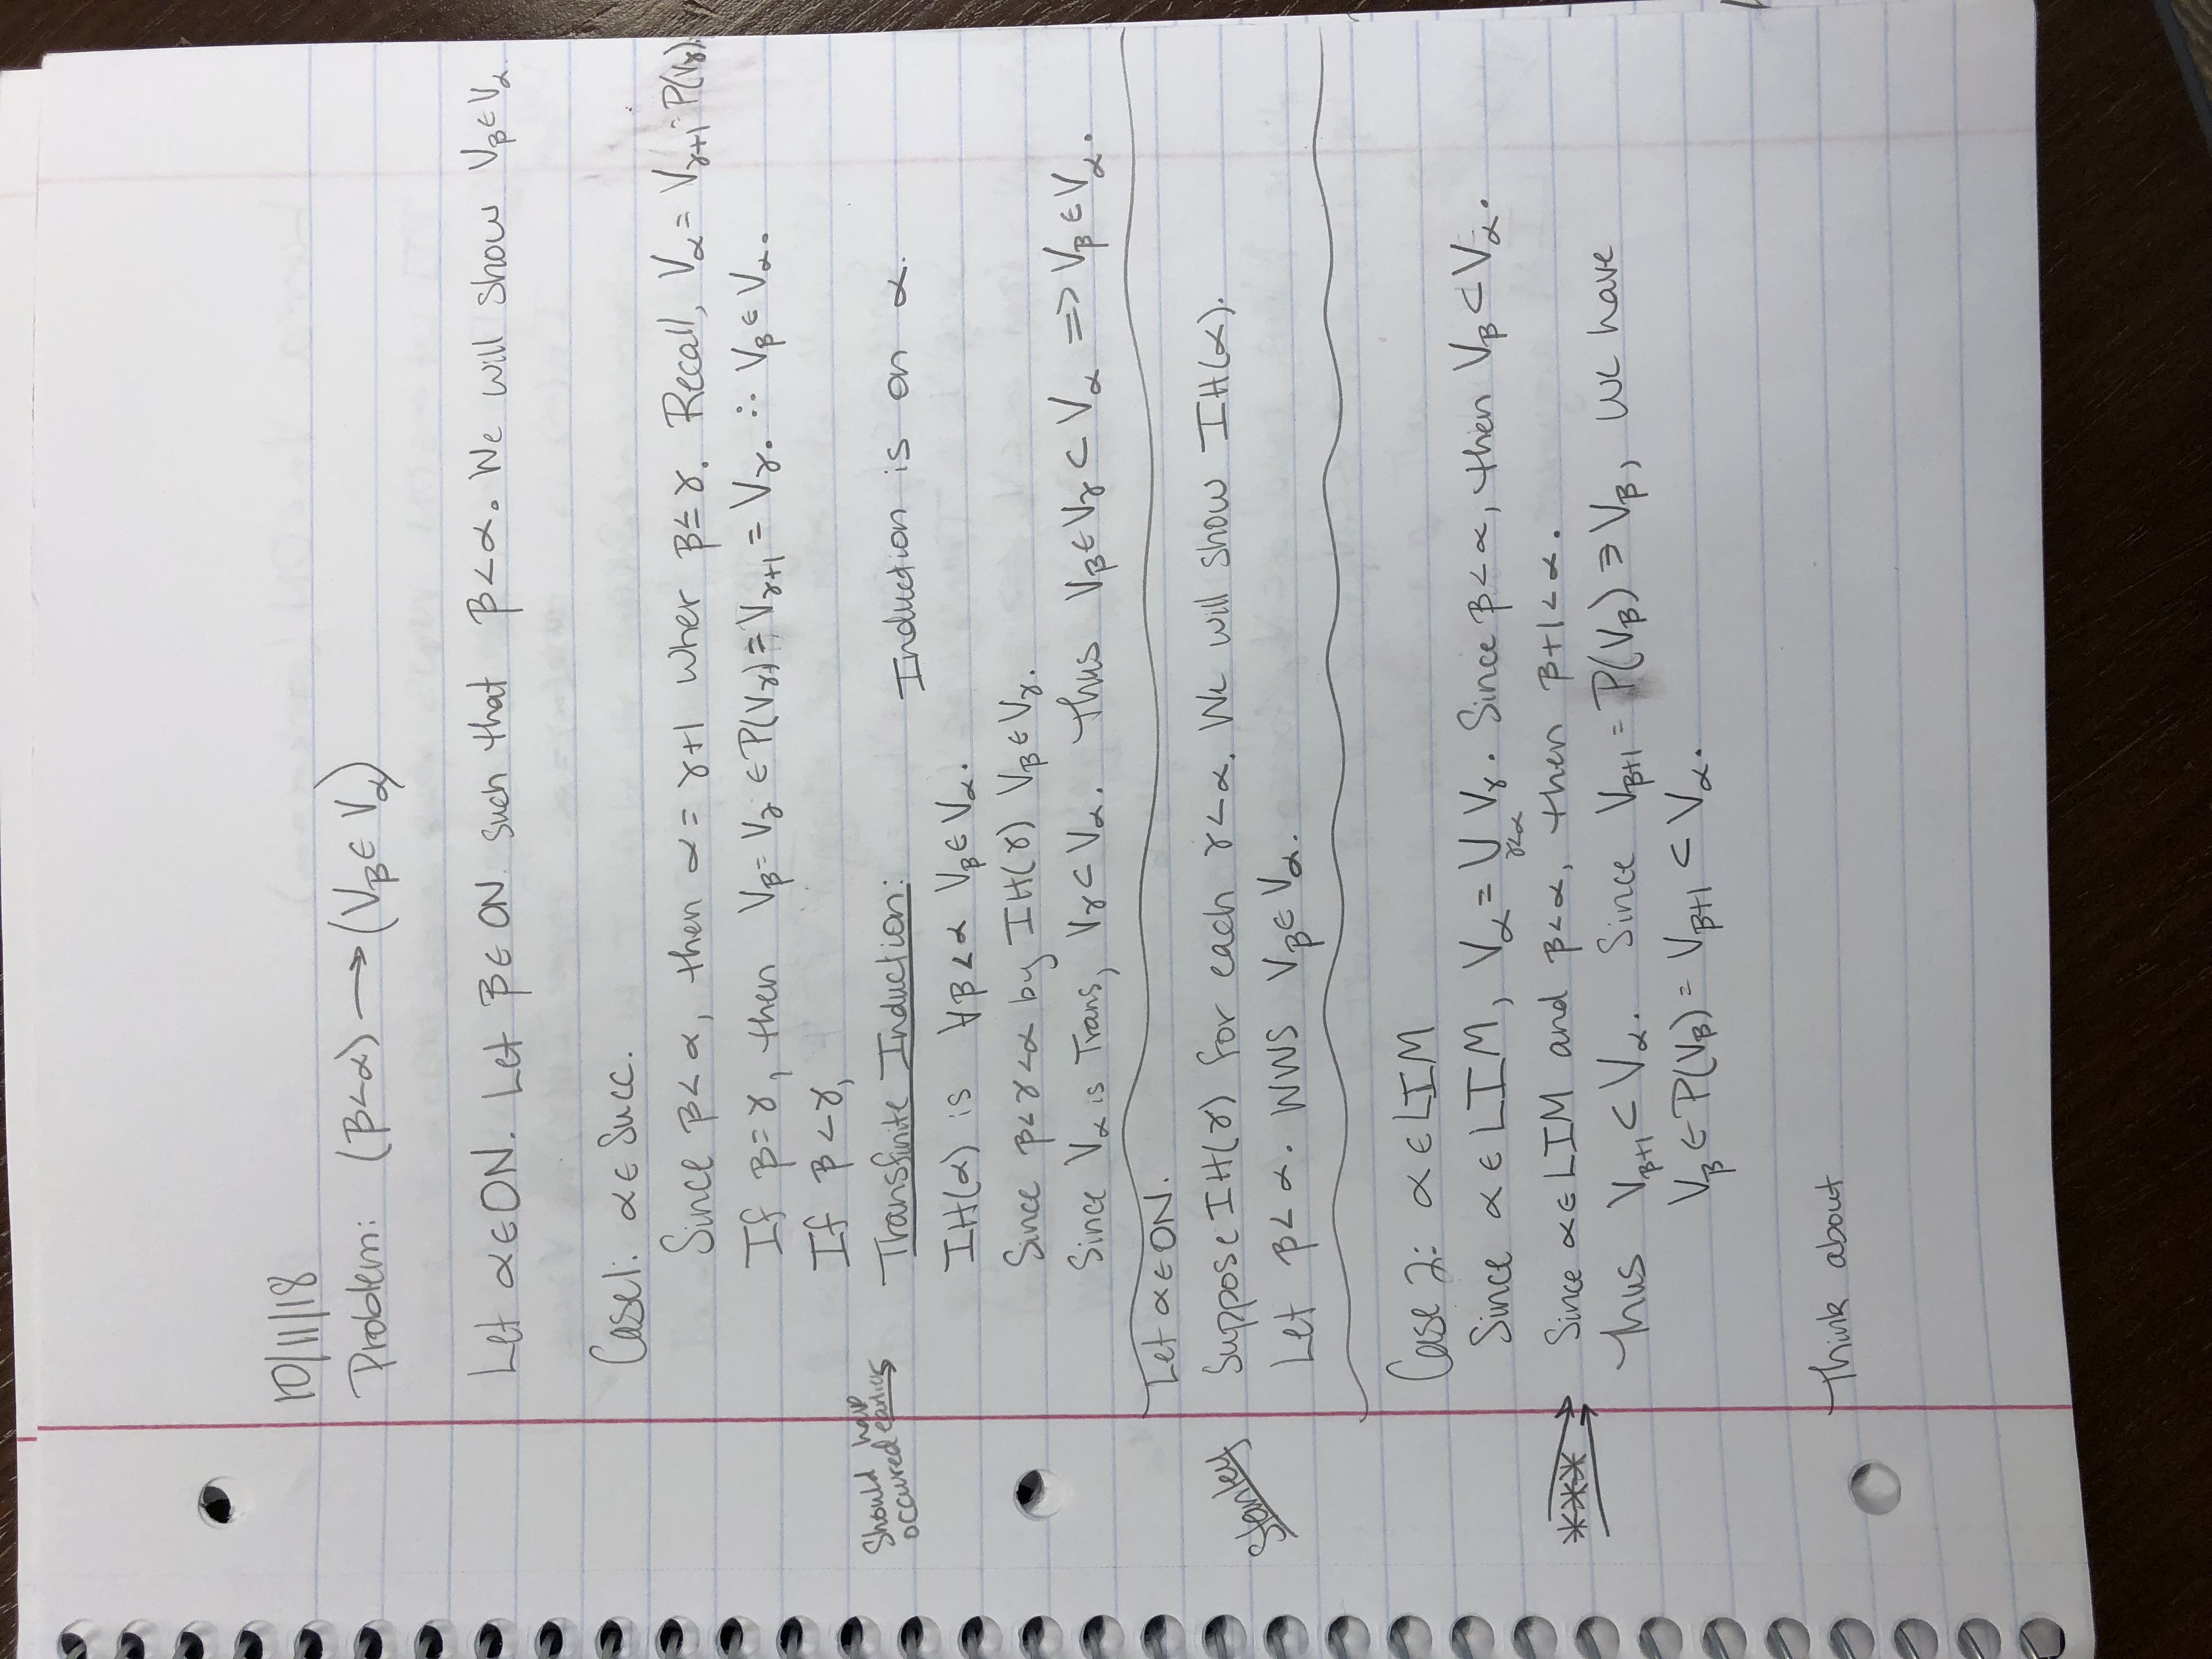 10/11/18
Problem: (β<α) → (V_β ∈ V_α)
Let α∈ON. Let β∈ON such that β<α. We will show V_β∈V_α.
Case 1: α∈Succ.
Since β<α, then α = γ+1 wher β≤γ. Recall, V_α = V_γ+1 = P(V_γ).
If β=γ, then V_β = V_γ ∈ P(V_γ) = V_γ+1 = V_γ. ∴ V_β ∈ V_α.
If β<γ,
Should have
occured earlier
Transfinite Induction: Induction is on α.
IH(α) is ∀β<α V_β∈V_α.
Since β<γ<α by IH(γ) V_β∈V_γ.
Since V_α is Trans, V_γ⊂V_α. Thus V_β∈V_γ⊂V_α => V_β∈V_α.
Let α∈ON.
Stanley
Suppose IH(γ) for each γ<α. We will show IH(α).
Let β<α. WWS V_β∈V_α.
Case 2: α∈LIM
Since α∈LIM, V_α = ∪_γ<α V_γ. Since β<α, then V_β⊂V_α.
*** Since α∈LIM and β<α, then β+1<α.
Thus V_β+1⊂V_α. Since V_β+1 = P(V_β) ∋ V_β, we have
V_β ∈ P(V_β) = V_β+1 ⊂ V_α.
Think about